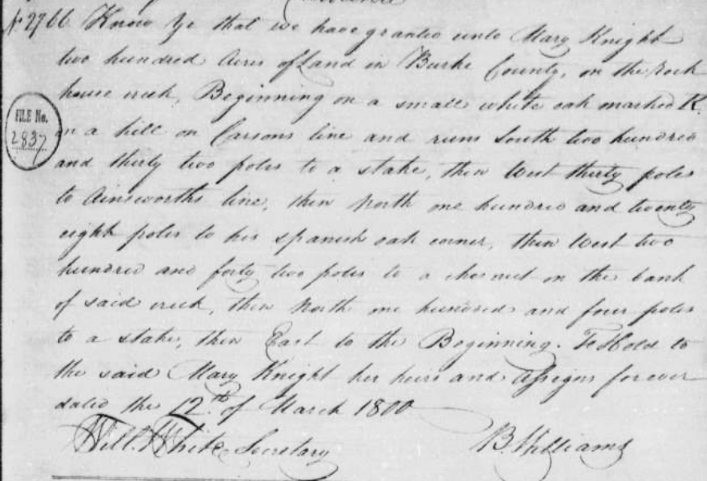 No 2766 Know Ye that we have granted unto Mary Knight
two hundred Acres of Land in Burke County, on the Rock
house creek, Beginning on a small white oak marked K.
FILE No.
2837
on a hill on Carsons line and runs South two hundred
and thirty two poles to a stake, then West thirty poles
to Ainsworths line, then North one hundred and twenty
eight poles to his spanish oak corner, then West two
hundred and forty two poles to a chesnut on the bank
of said creek, then North one hundred and four poles
to a stake, then East to the Beginning. To Hold to
the said Mary Knight her heirs and Assigns forever
dated the 12th of March 1800
Will. White Secretary B. Williams